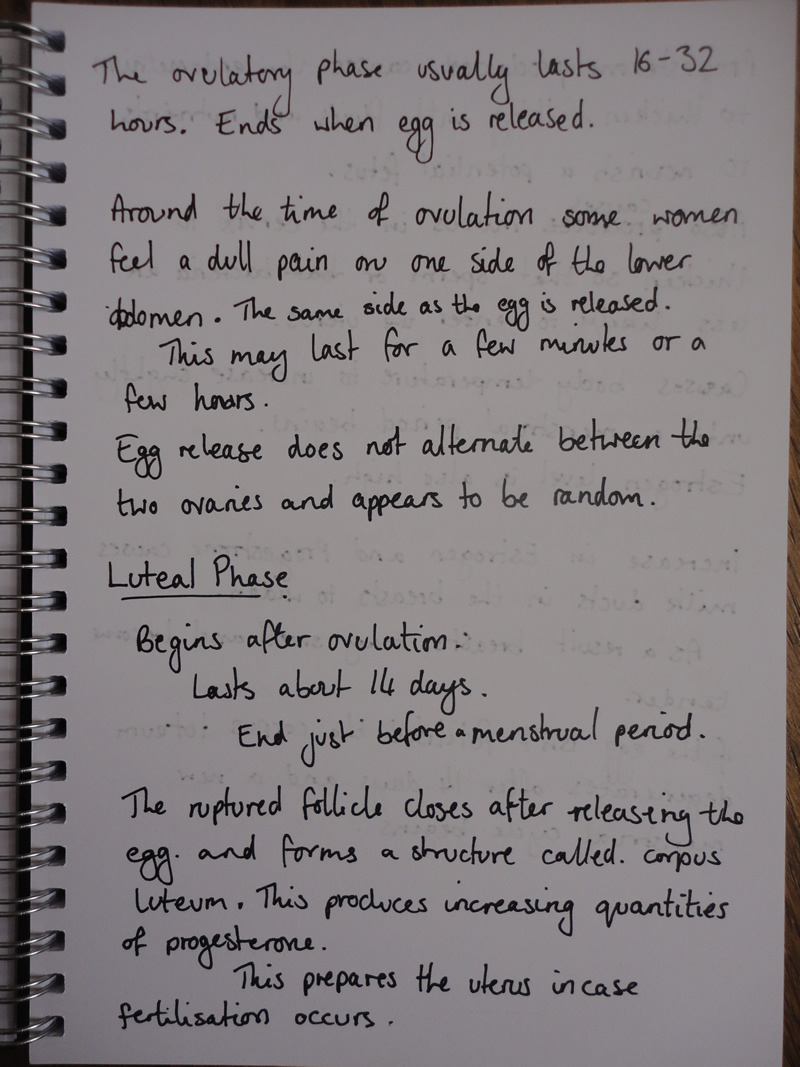 The ovulatory phase usually lasts 16-32
hours. Ends when egg is released.
Around the time of ovulation some women
feel a dull pain on one side of the lower
abdomen. The same side as the egg is released.
This may last for a few minutes or a
few hours.
Egg release does not alternate between the
two ovaries and appears to be random.
Luteal Phase
Begins after ovulation.
Lasts about 14 days.
End just before a menstrual period.
The ruptured follicle closes after releasing the
egg. and forms a structure called. corpus
luteum. This produces increasing quantities
of progesterone.
This prepares the uterus in case
fertilisation occurs.